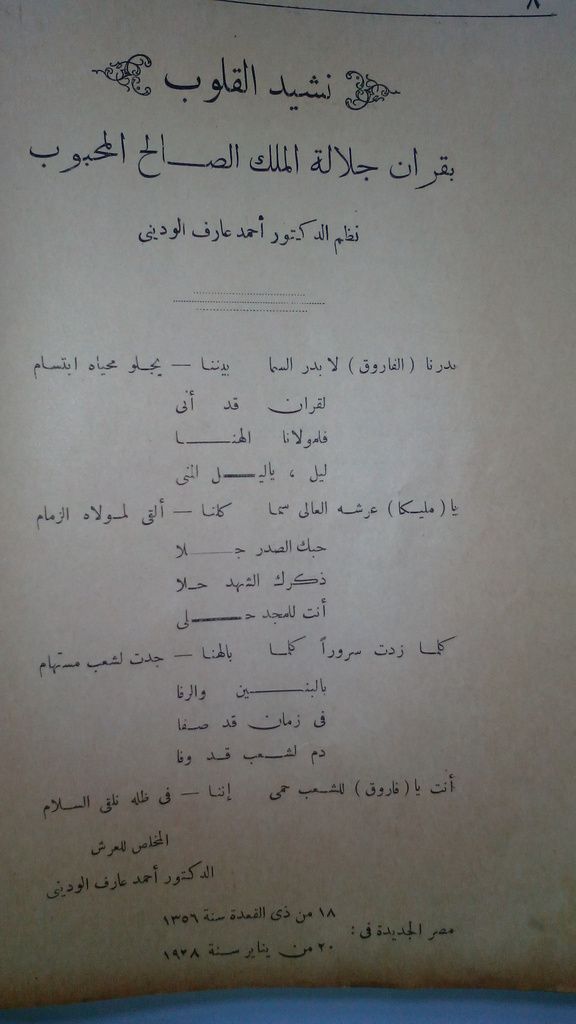 ٨
نشيد القلوب
بقران جلالة الملك الصالح المحبوب
نظم الدكتور أحمد عارف الودينى
بدرنا (الفاروق) لا بدر السما بيننا — يجلو محياه ابتسام
لقران قد أتى
فلمولانا الهنا
ليل ، ياليل المنى
يا (مليكا) عرشه العالى سما كلنا — ألقى لمولاه الزمام
حبك الصدر جلا
ذكرك الشهد حلا
أنت للمجد حلى
كلما زدت سروراً كلما بالهنا — جدت لشعب مستهام
بالبنين والرفا
فى زمان قد صفا
دم لشعب قد وفا
أنت يا (فاروق) للشعب حمى إننا — فى ظله نلقى السلام
المخلص للعرش
الدكتور أحمد عارف الودينى
مصر الجديدة فى :
١٨ من ذى القعدة سنة ١٣٥٦
٢٠ من يناير سنة ١٩٣٨